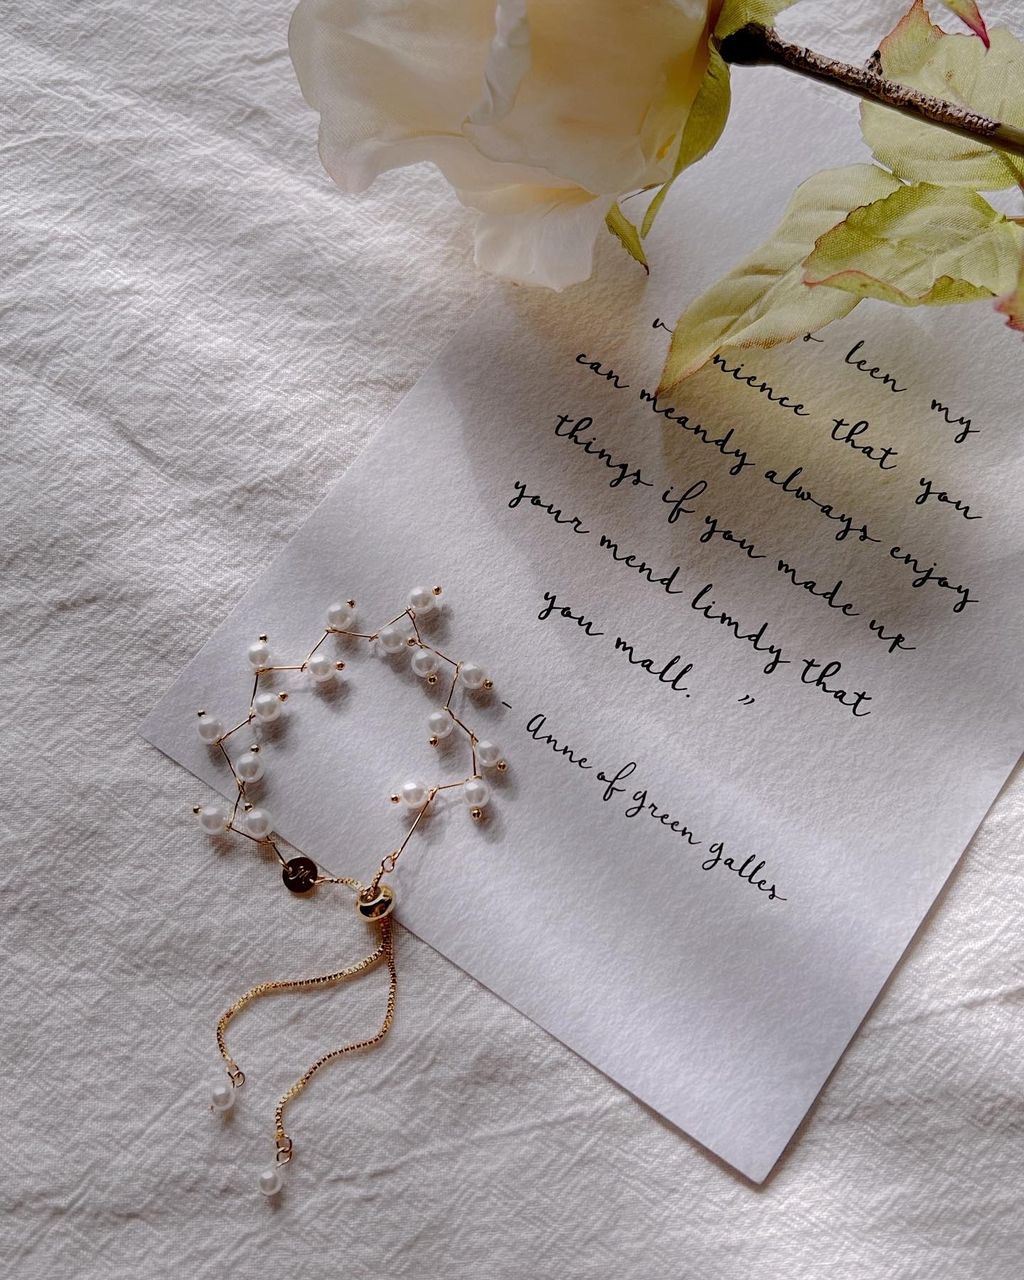 leen my
nience that you
can meandy always enjoy
things if you made up
your mend limdy that
you mall. ”
- Anne of green galles